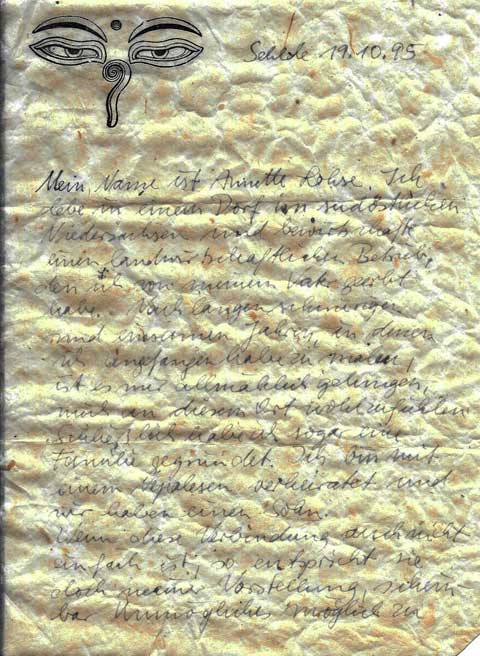 Sehlde 19.10.95
Mein Name ist Annette Rohse. Ich
lebe in einem Dorf im südöstlichen
Niedersachsen und bewirtschafte
einen landwirtschaftlichen Betrieb,
den ich von meinem Vater geerbt
habe. Nach langen schwierigen
und einsamen Jahren, in denen
ich angefangen habe zu malen,
ist es mir allmählich gelungen,
mich an diesem Ort wohlzufühlen.
Schließlich habe ich sogar eine
Familie gegründet. Ich bin mit
einem Nepalesen verheiratet und
wir haben einen Sohn.
Wenn diese Verbindung auch nicht
einfach ist, so entspricht sie
doch meiner Vorstellung, schein-
bar Unmögliches möglich zu